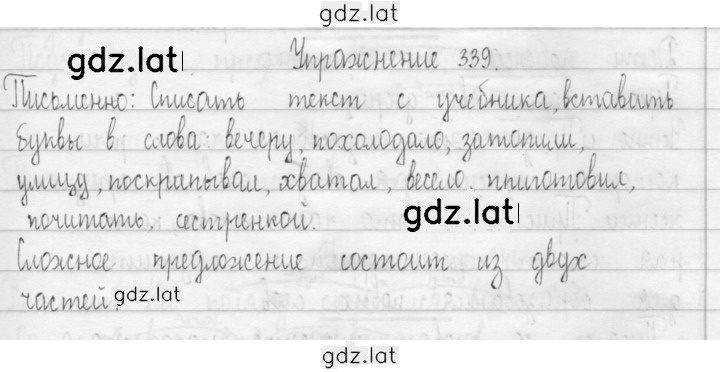 gdz.lat
gdz.lat
Упражнение 339.
Письменно: Списать текст с учебника, вставить
буквы в слова: вечеру, похолодало, затопили,
улицу, поскрапывал, хватал, весело. приготовил,
почитать, сестренкой.
gdz.lat
Сложное предложение состоит из двух
частей.
gdz.lat
gdz.lat